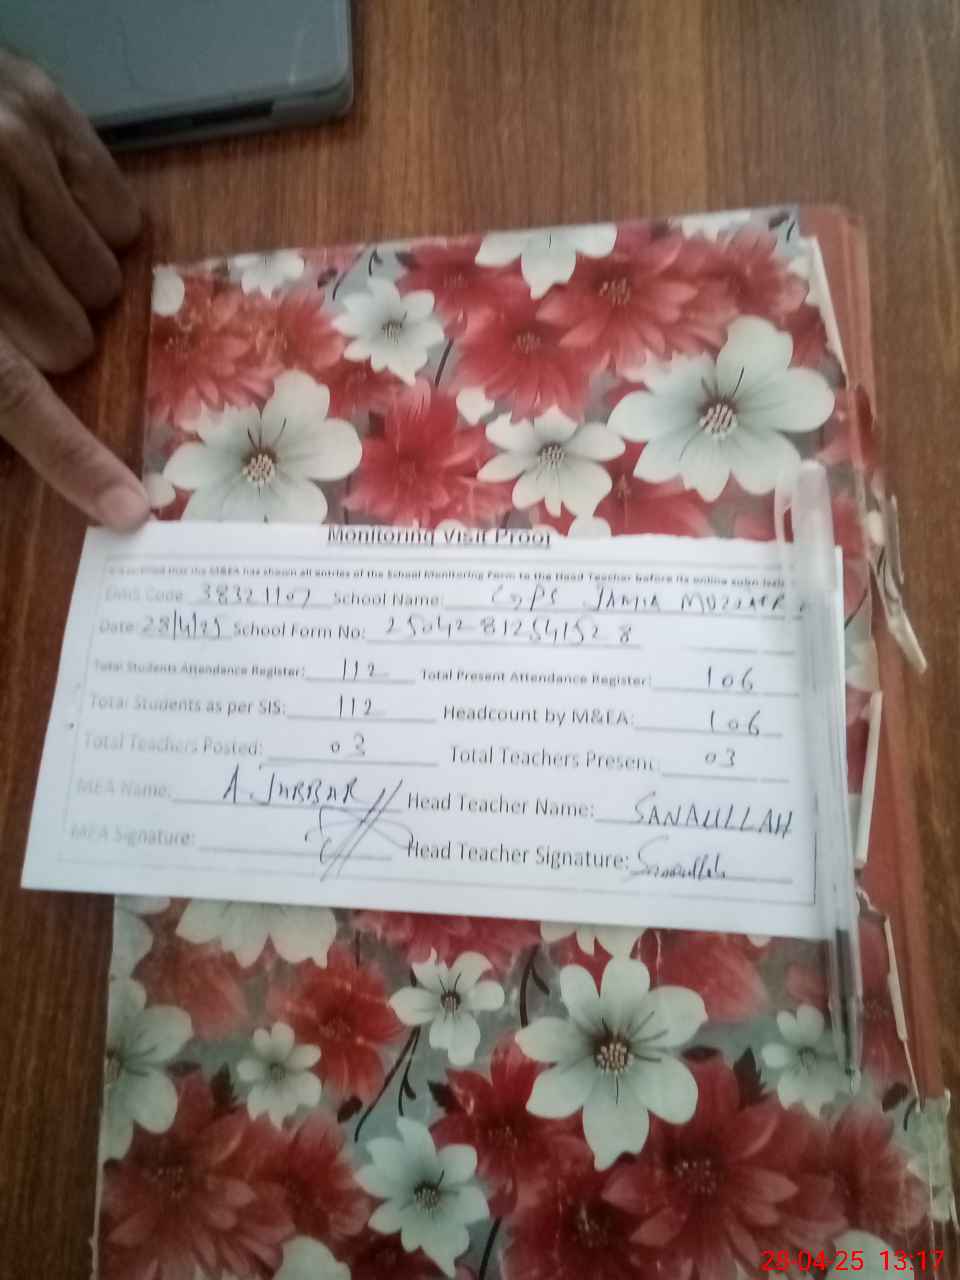 Monitoring Visit Proof
It is certified that the M&EA has shown all entries of the School Monitoring Form to the Head Teacher before its online
EMIS Code 38321107 School Name: JAMIA
Date: 28/4/25 School Form No: 2504281254152 8
Total Students Attendance Register: 112 Total Present Attendance Register: 106
Total Students as per SIS: 112 Headcount by M&EA: 106
Total Teachers Posted: 03 Total Teachers Present: 03
MEA Name: A. JABBAR Head Teacher Name: SANAULLAH
MEA Signature: Head Teacher Signature: Sanaullah
28-04-25 13:17